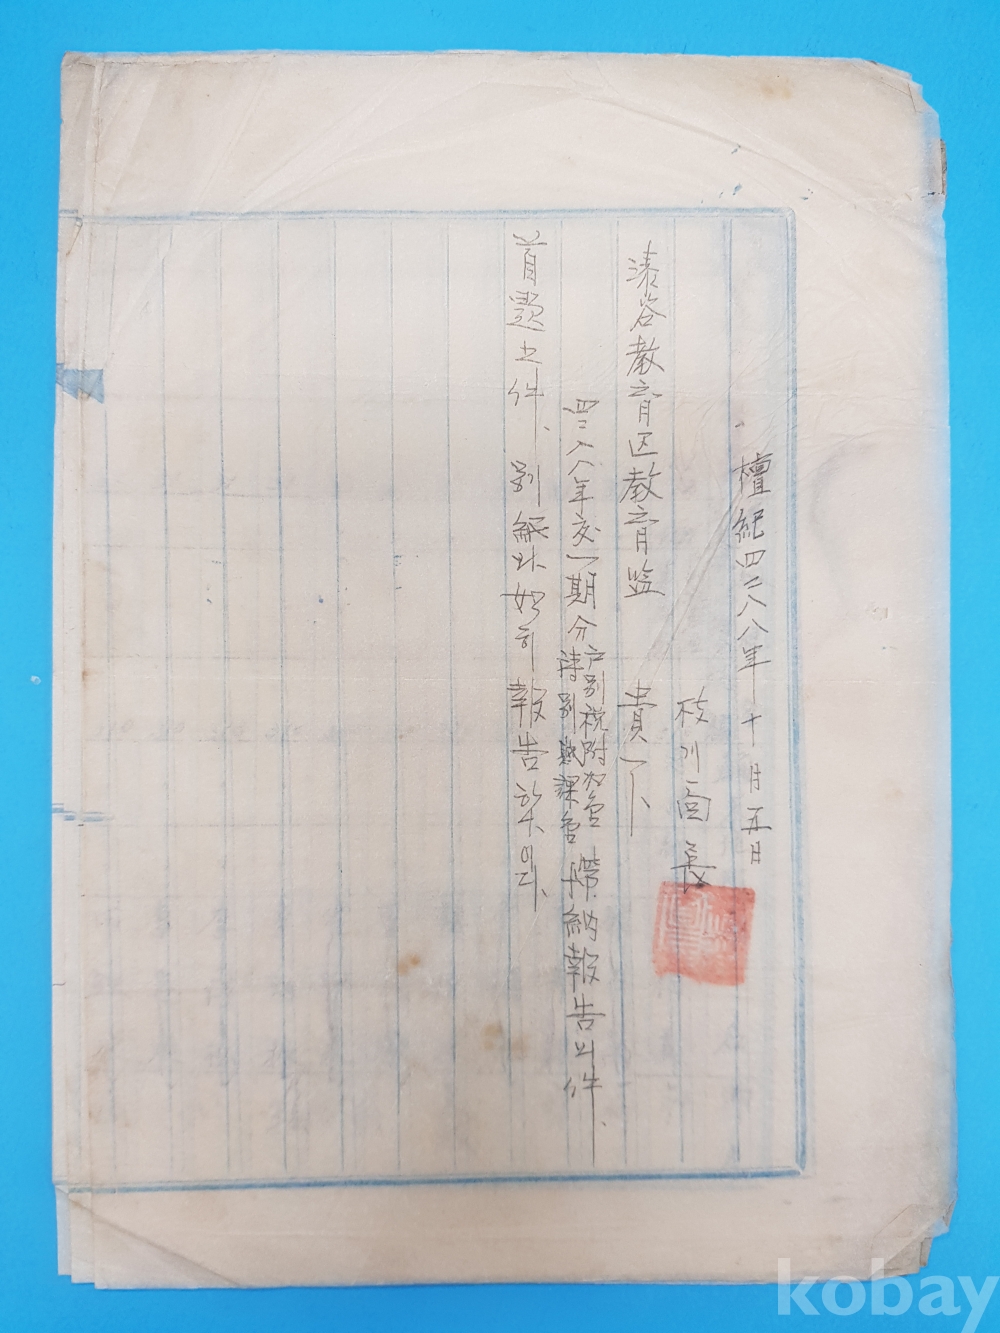 檀紀四二八八年 十月 五日
枝川面長
漆谷教育区教育監 貴下
四二八八年度一期分 戸別税附加金 特別賦課金 滞納報告의件、
首題之件、別紙와如히報告하나이다、
kobay